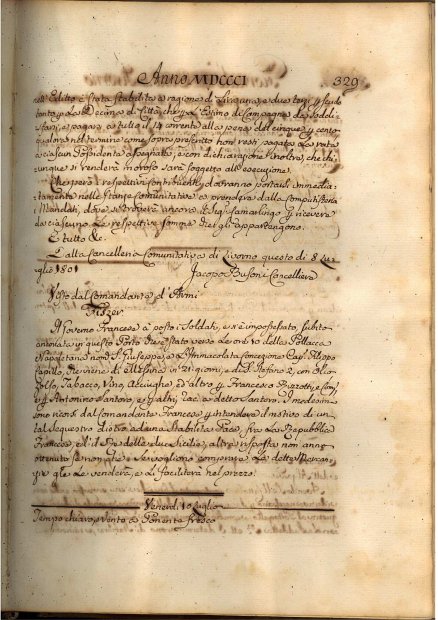 Anno MDCCCI 329
nell'Editto è stata stabilita a ragione di Lire una, e due terzi p scudo
tanto p la Decima di Città che p L'Estimo di Campagna da soddi-
sfarsi, e pagarsi a tutto il 14 corrente alla pena del cinque p cento
qualora nel termine come sopra prescritto non resti pagata La rata
a ciascun Possidente assegnata, e con dichiarazione inoltre, che chi-
unque si renderà moroso sarà soggetto all'esecuzione.
Che però i respettivi contribuenti dovranno portarsi immedia-
tamente nelle stanze Comunitative a prendere dalla Computisteria
i Mandati, dove si troverà ancora il Sig. Camarlingo p ricevere
da ciascuno Le respettive somme che gli appartengono.
E tutto &c.
Dalla Cancelleria Comunitativa di Livorno questo di 8 Lu-
glio 1801
Jacopo Busoni Cancelliere
Visto dal Comandante d'Armi
Fuszer
Il Governo Francese à posto i Soldati, e si è impossessato, subito
ancorata in questo Porto Ove è stata verso Le ore 10 della Pollacca
Napoletana nom. S. Giuseppe, e L'Immacolata Concezione Cap. Filippo
che viene di Messina in 21 giorni, e da S. Stefano 2, con Olio
Zolfo, Tabacco, Vino, Acciughe, ed altro p Francesco Bizzotti, e Comp.
e p Antonino Santoro, e p altri, Rac. a detto Santoro. I medesimi
sono ricorsi dal Comandante Francese p intendere il motivo di un
tal sequestro dietro ad una stabilita Pace, fra La Repubblica
Francese, e il Re delle due Sicilie, altra risposta non anno
ottenuta se non che se vogliono comprare Le dette Mercan-
zie gle Le venderà, e Le faciliterà nel prezzo.
Venerdi 10 Luglio
Tempo chiaro, vento a Ponente fresco